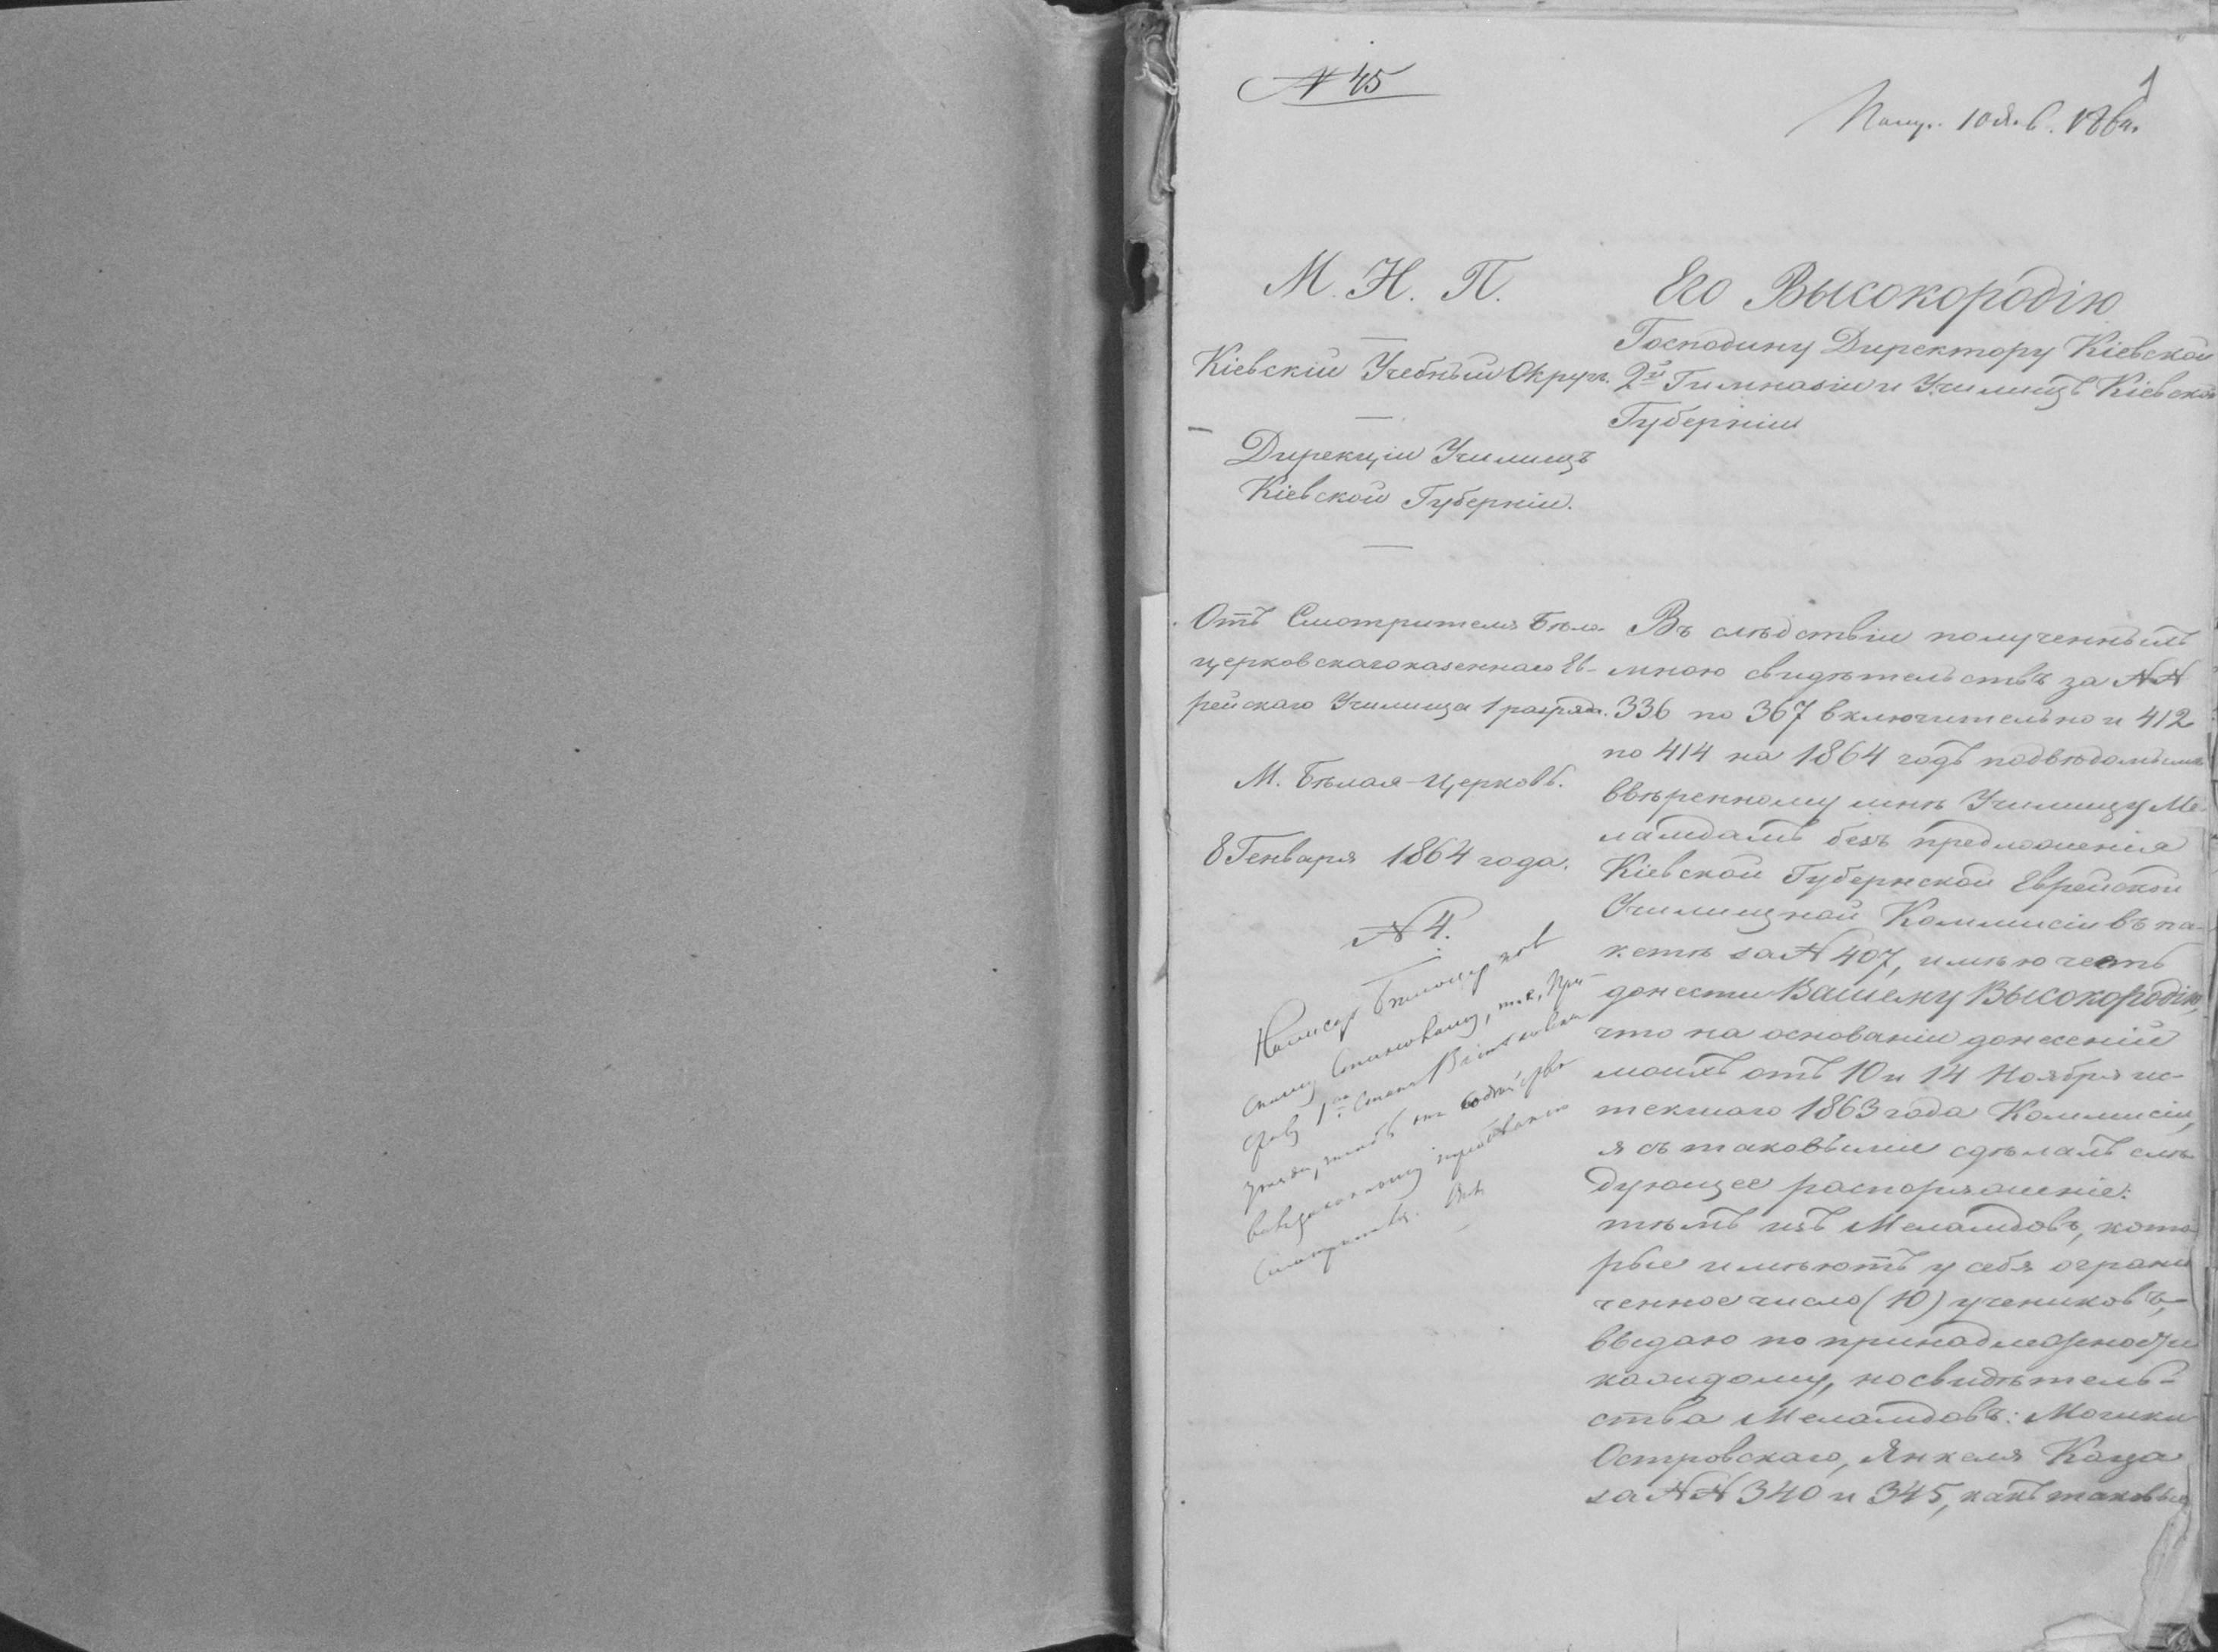 № 45
1
Получ. 10 Янв. 1864.
М. Н. П.
Кіевскій Учебный Округъ.
Дирекціи Училищъ
Кіевской Губерніи.
Отъ Смотрителя Бѣло-
церковскаго казеннаго Ев-
рейскаго Училища 1 разряда.
М. Бѣлая-Церковь.
8 Генваря 1864 года.
№ 4.
Написать Бѣлоцерков
скому Становому, т. е. При
ставу 1го Стана Васильков.
уѣзда, чтобъ онъ содѣйство
валъ законному требованію
Смотрителя.
Его Высокородію
Господину Директору Кіевской
2й Гимназіи и Училищъ Кіевской
Губерніи
Въ слѣдствіи полученныхъ
мною свидѣтельствъ за №№
336 по 367 включительно и 412
по 414 на 1864 годъ подвѣдомымъ
ввѣренному мнѣ Училищу Ме-
ламдамъ безъ предложенія
Кіевской Губернской Еврейской
Училищной Коммисіи въ па-
кетѣ за № 407, имѣю честь
донести Вашему Высокородію,
что на основаніи донесеній
моихъ отъ 10 и 14 Ноября ис-
текшаго 1863 года Коммисіи,
я съ таковыми сдѣлалъ слѣ-
дующее распоряженіе:
тѣмъ изъ Меламдовъ, кото-
рые имѣютъ у себя ограни
ченное число (10) учениковъ,
выдаю по принадлежности
каждому, но свидѣтель-
ства Меламдовъ: Мошки
Островскаго, Янкеля Каца
за №№ 340 и 345, какъ таковые